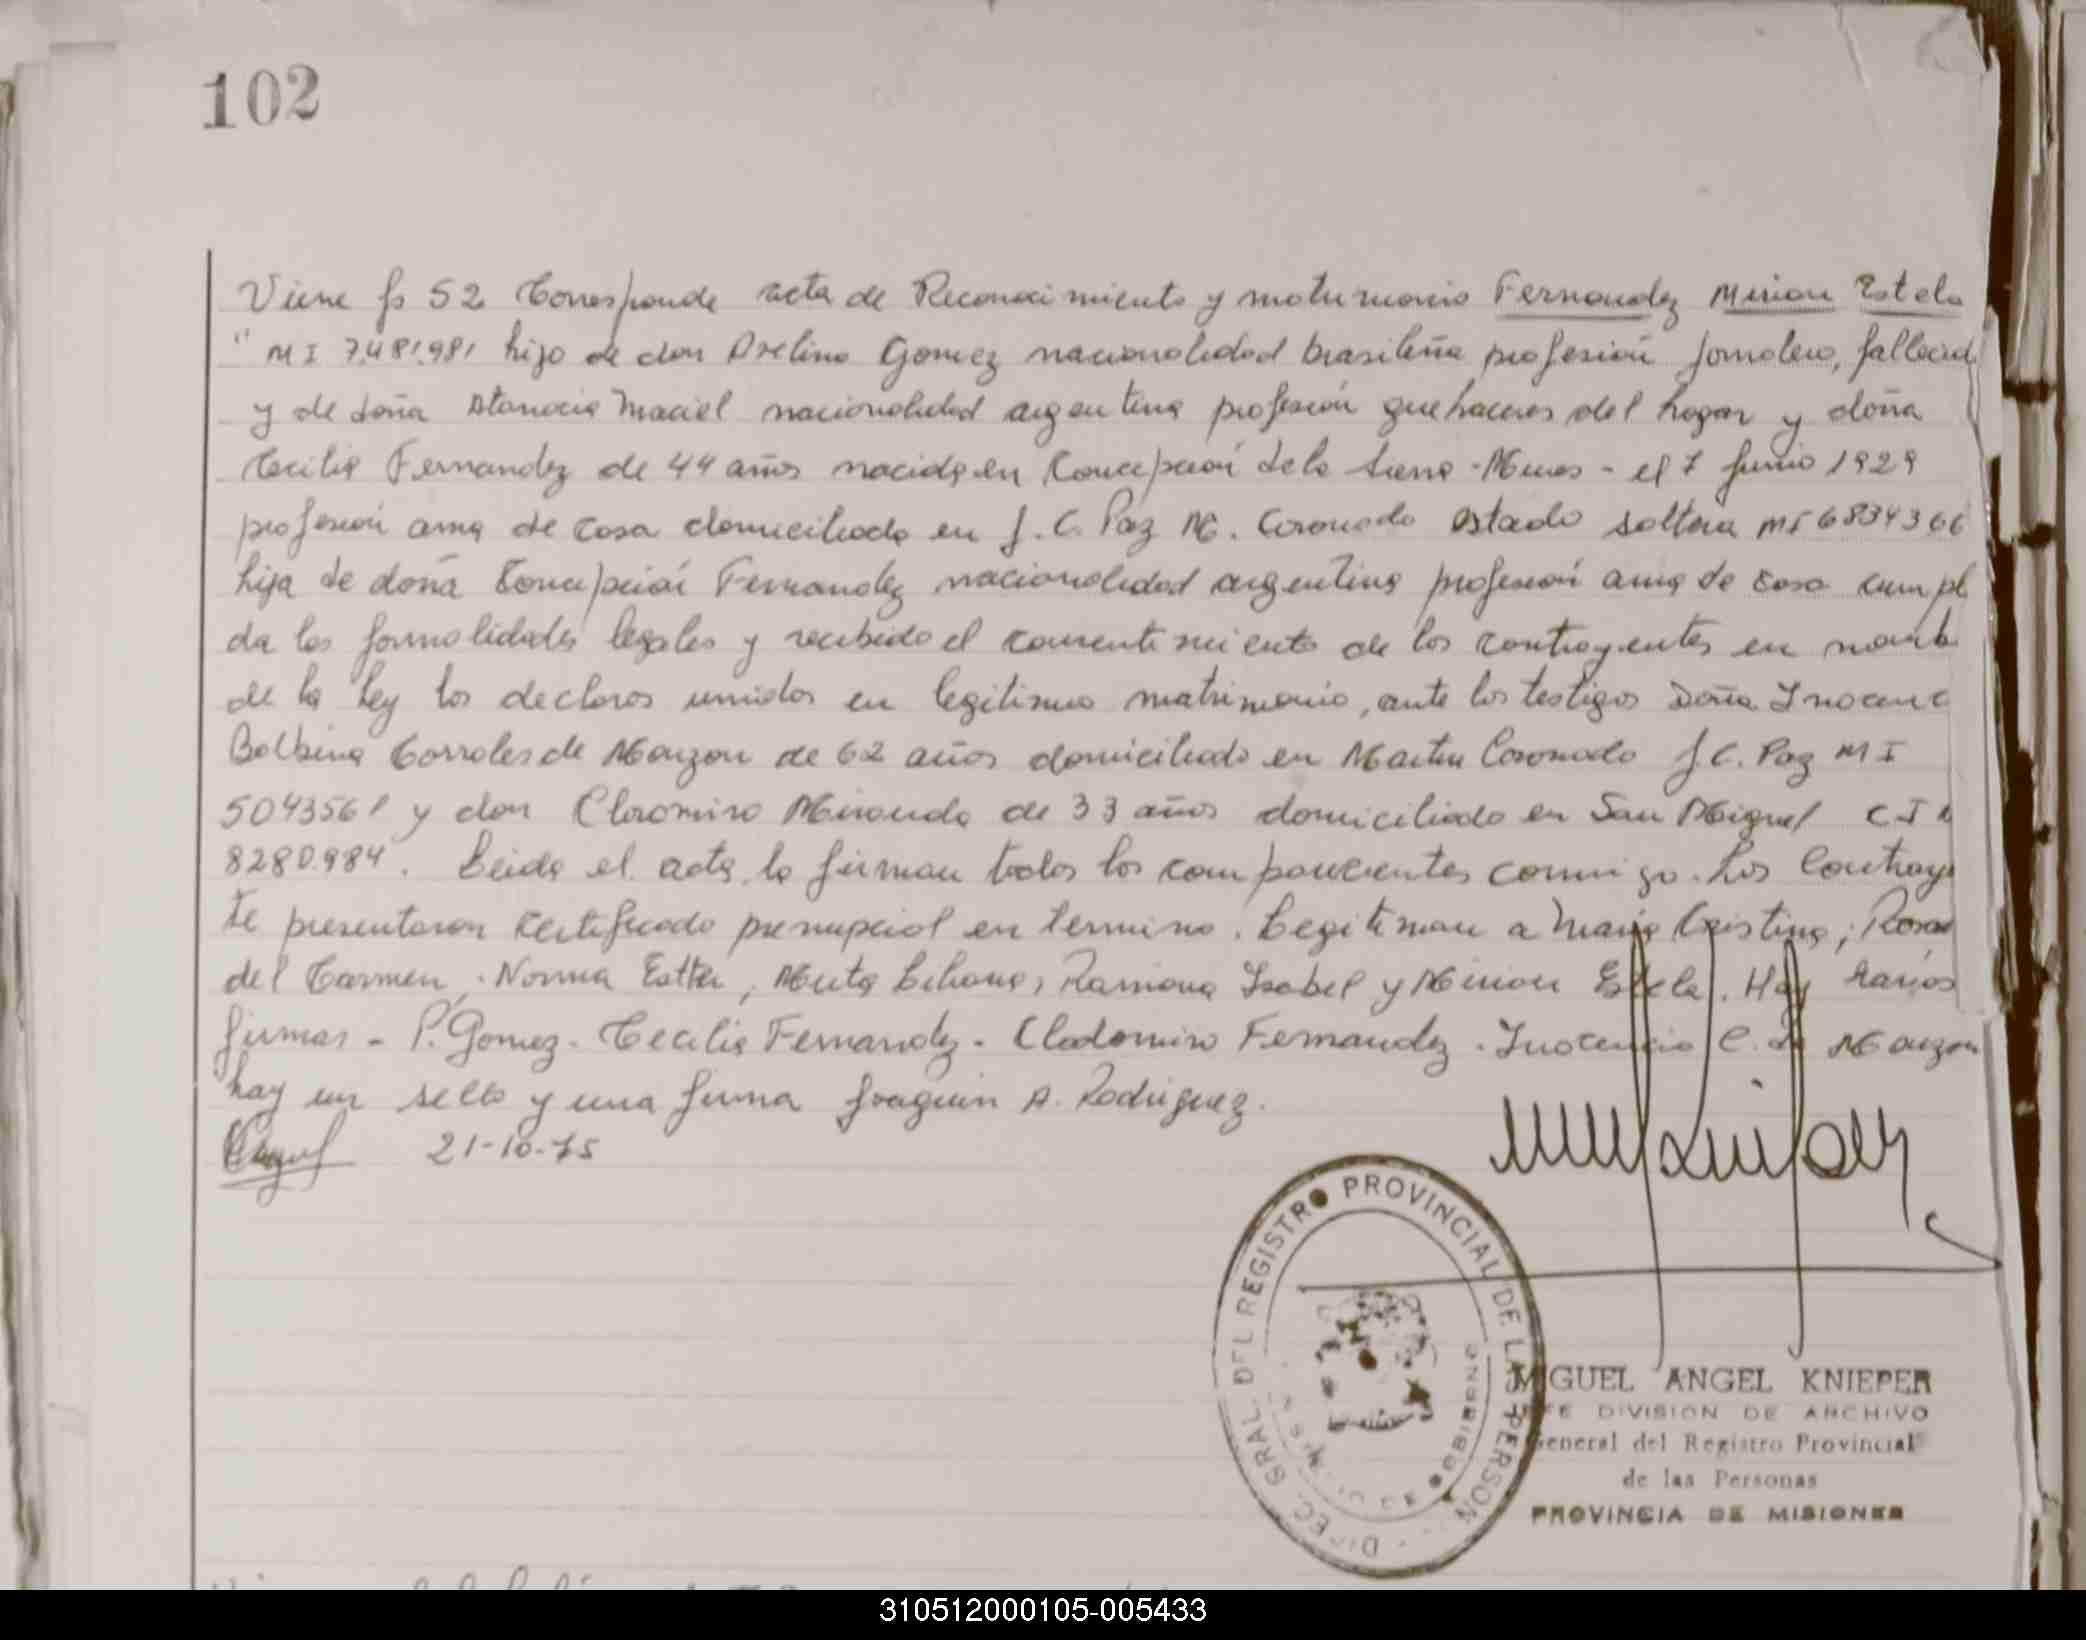 102
Viene fs 52 Corresponde acta de Reconocimiento y matrimonio Fernandez Mirian Estela
" M I 7.481.981 hijo de don Avelino Gomez nacionalidad brasileña profesión jornalero, fallecid
y de doña Atanacia Maciel nacionalidad argentina profesión quehaceres del hogar y doña
Cecilia Fernandez de 44 años nacida en Concepción de la Sierra - Mnes - el 7 Junio 1929
profesión ama de casa domiciliada en J. C. Paz M. Coronado estado soltera MI 6834366
hija de doña Concepción Fernandez nacionalidad argentina profesión ama de casa cumpli
da las formalidades legales y recibido el consentimiento de los contrayentes en nomb
de la Ley los declaros unidos en legitimo matrimonio, ante los testigos Doña Inocenc
Balbina Corrales de Monzon de 62 años domiciliado en Martin Coronado J. C. Paz M I
5043561 y don Cloromiro Miranda de 33 años domiciliado en San Miguel C I N
8280.984. Leida el acta la firman todos los comparecientes conmigo. Los Contraye
te presentaron certificado prenupcial en termino. Legitiman a Maria Cristina; Rosa
del Carmen, Norma Esther, Mirta Liliana, Ramona Isabel y Mirian Estela. Hay varios
firmas - P. Gomez - Cecilia Fernandez - Clodomiro Fernandez - Inocencia C. de Monzon
hay un sello y una firma Joaquin A. Rodriguez.
21-10-75
DIREC. GRAL. DEL REGISTRO PROVINCIAL DE LAS PERSON
DE GOBIERNO
MIGUEL ANGEL KNIEPER
JEFE DIVISION DE ARCHIVO
General del Registro Provincial
de las Personas
PROVINCIA DE MISIONES
310512000105-005433